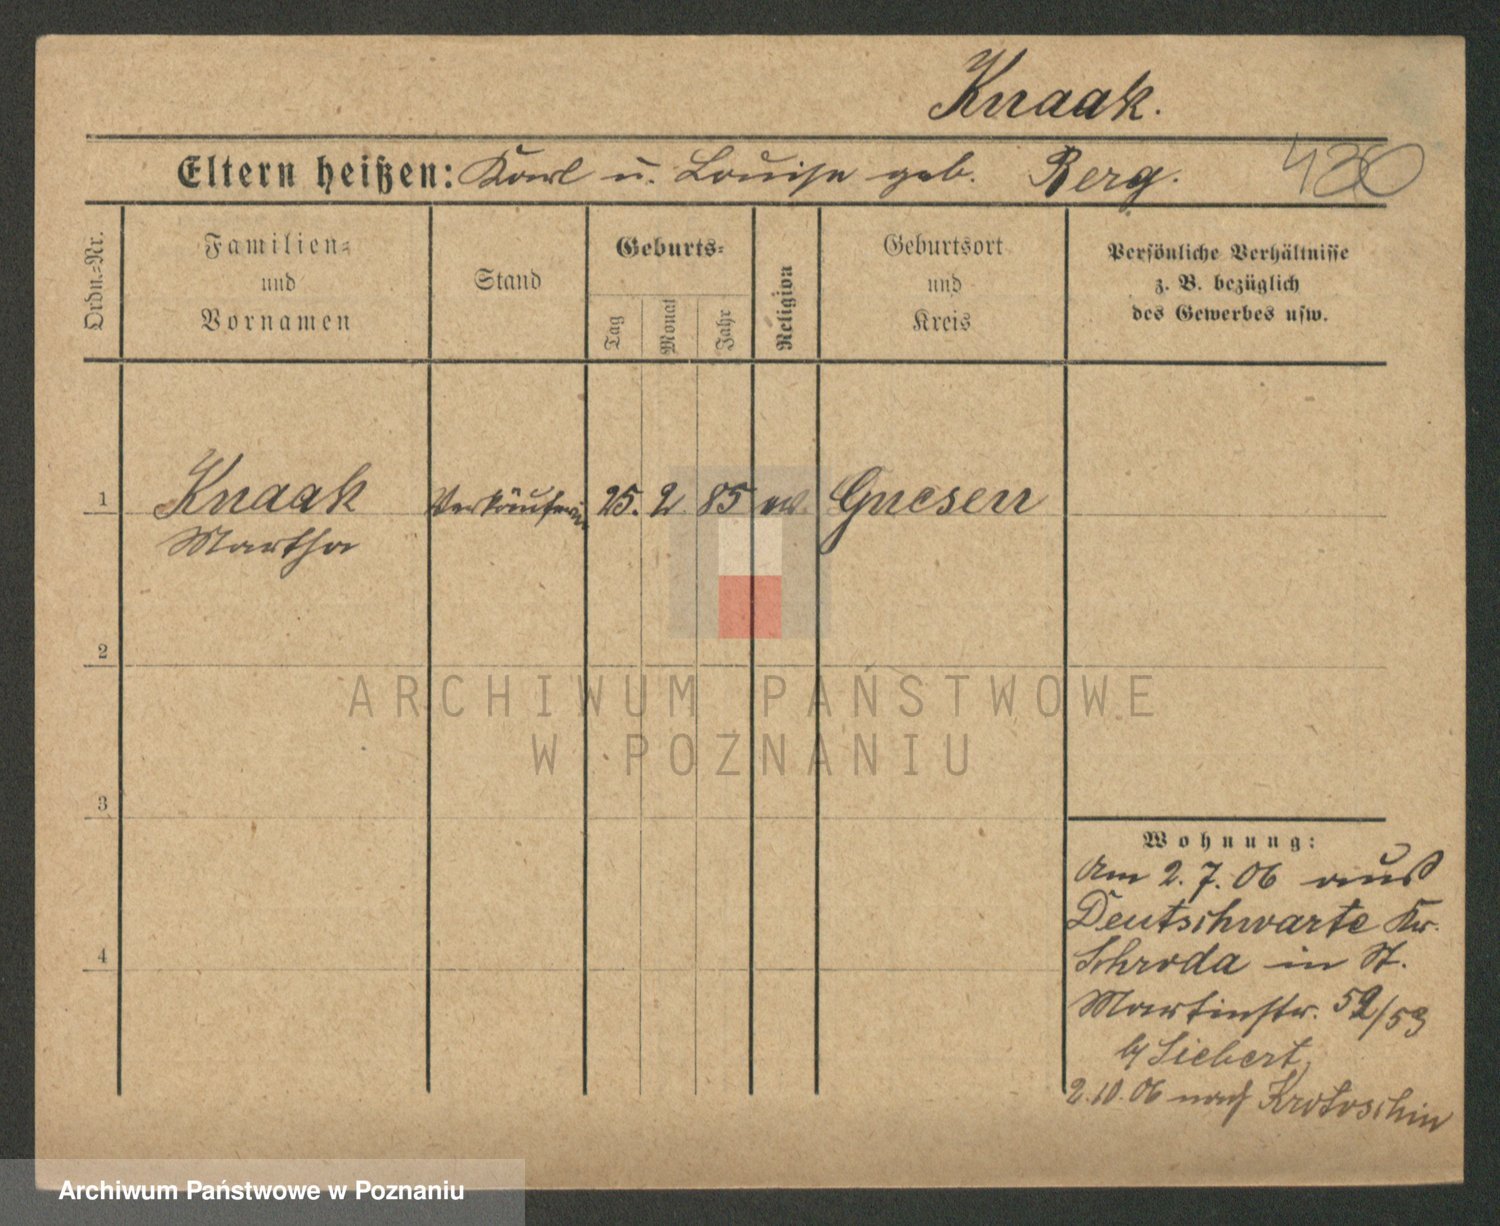 Knaak.
Eltern heißen: Karl u. Louise geb. Berg.
480
Ordn.-Nr.
Familien-
und
Vornamen
Stand
Geburts-
Tag
Monat
Jahr
Religion
Geburtsort
und
Kreis
Persönliche Verhältnisse
z. B. bezüglich
des Gewerbes usw.
1
Knaak
Martha
Verkäuferin
25. 2 85
ev.
Gnesen
2
3
4
Wohnung:
Am 2. 7. 06 aus
Deutschwarte Kr.
Schroda in St.
Martinstr. 52/53
b/ Siebert,
2.10.06 nach Krotoschin
ARCHIWUM PAŃSTWOWE
W POZNANIU
Archiwum Państwowe w Poznaniu